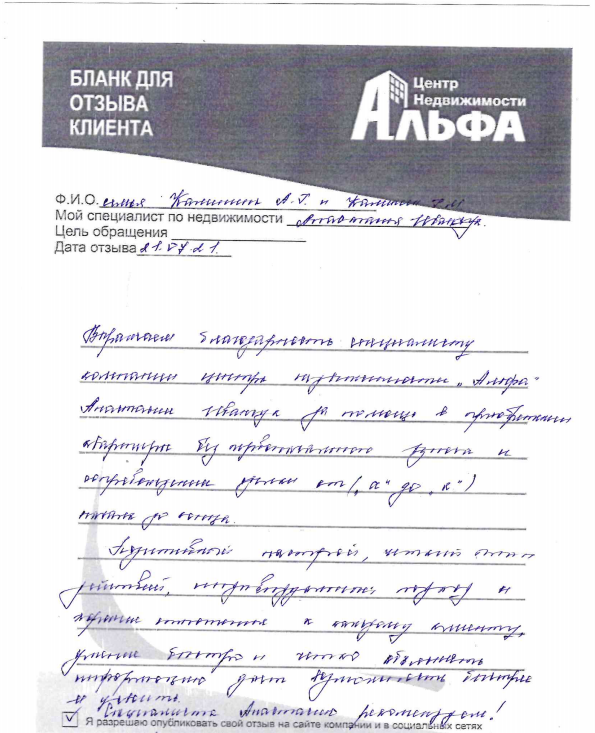 БЛАНК ДЛЯ
ОТЗЫВА
КЛИЕНТА
Центр
Недвижимости
АЛЬФА
Ф.И.О. семья А.Г. и
Мой специалист по недвижимости Анастасия
Цель обращения
Дата отзыва 21.07.21.
Выражаем благодарность специалисту
компании центра недвижимости „Альфа"
Анастасии за помощь в приобретении
квартиры без первоначального взноса и
сопровождении сделки от („а" до „я")
начала до конца.
Позитивный настрой, четкий
действий, индивидуальный подход и
хорошее отношение к каждому клиенту,
умение быстро и четко объяснять
информацию дает возможность быстрее
ее
Специалиста Анастасию рекомендуем!
Я разрешаю опубликовать свой отзыв на сайте компании и в социальных сетях